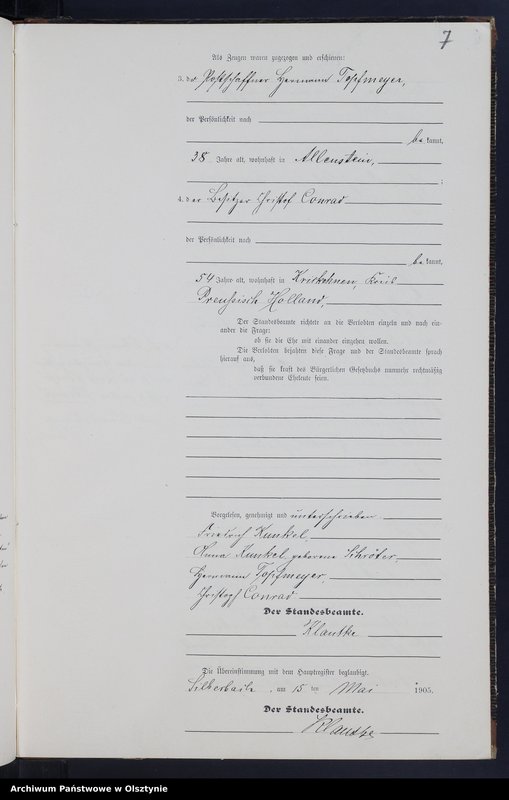 7
Als Zeugen waren zugezogen und erschienen:
3. der Postschaffner Hermann Topfmeyer,
der Persönlichkeit nach
bekannt,
38 Jahre alt, wohnhaft in Allenstein,
;
4. der Besitzer Christof Conrad
der Persönlichkeit nach
bekannt,
54 Jahre alt, wohnhaft in Kreis
Preußisch Holland,
Der Standesbeamte richtete an die Verlobten einzeln und nach ein-
ander die Frage:
ob sie die Ehe mit einander eingehen wollen.
Die Verlobten bejahten diese Frage und der Standesbeamte sprach
hierauf aus,
daß sie kraft des Bürgerlichen Gesetzbuchs nunmehr rechtmäßig
verbundene Eheleute seien.
Vorgelesen, genehmigt und unterschrieben
Friedrich Kunkel
Anna Kunkel geborene Schröter,
Hermann Topfmeyer,
Christoph Conrad
Der Standesbeamte.
Klautke
Die Übereinstimmung mit dem Hauptregister beglaubigt.
Silberbach, am 15 ten Mai 1905.
Der Standesbeamte.
Klautke
Archiwum Państwowe w Olsztynie